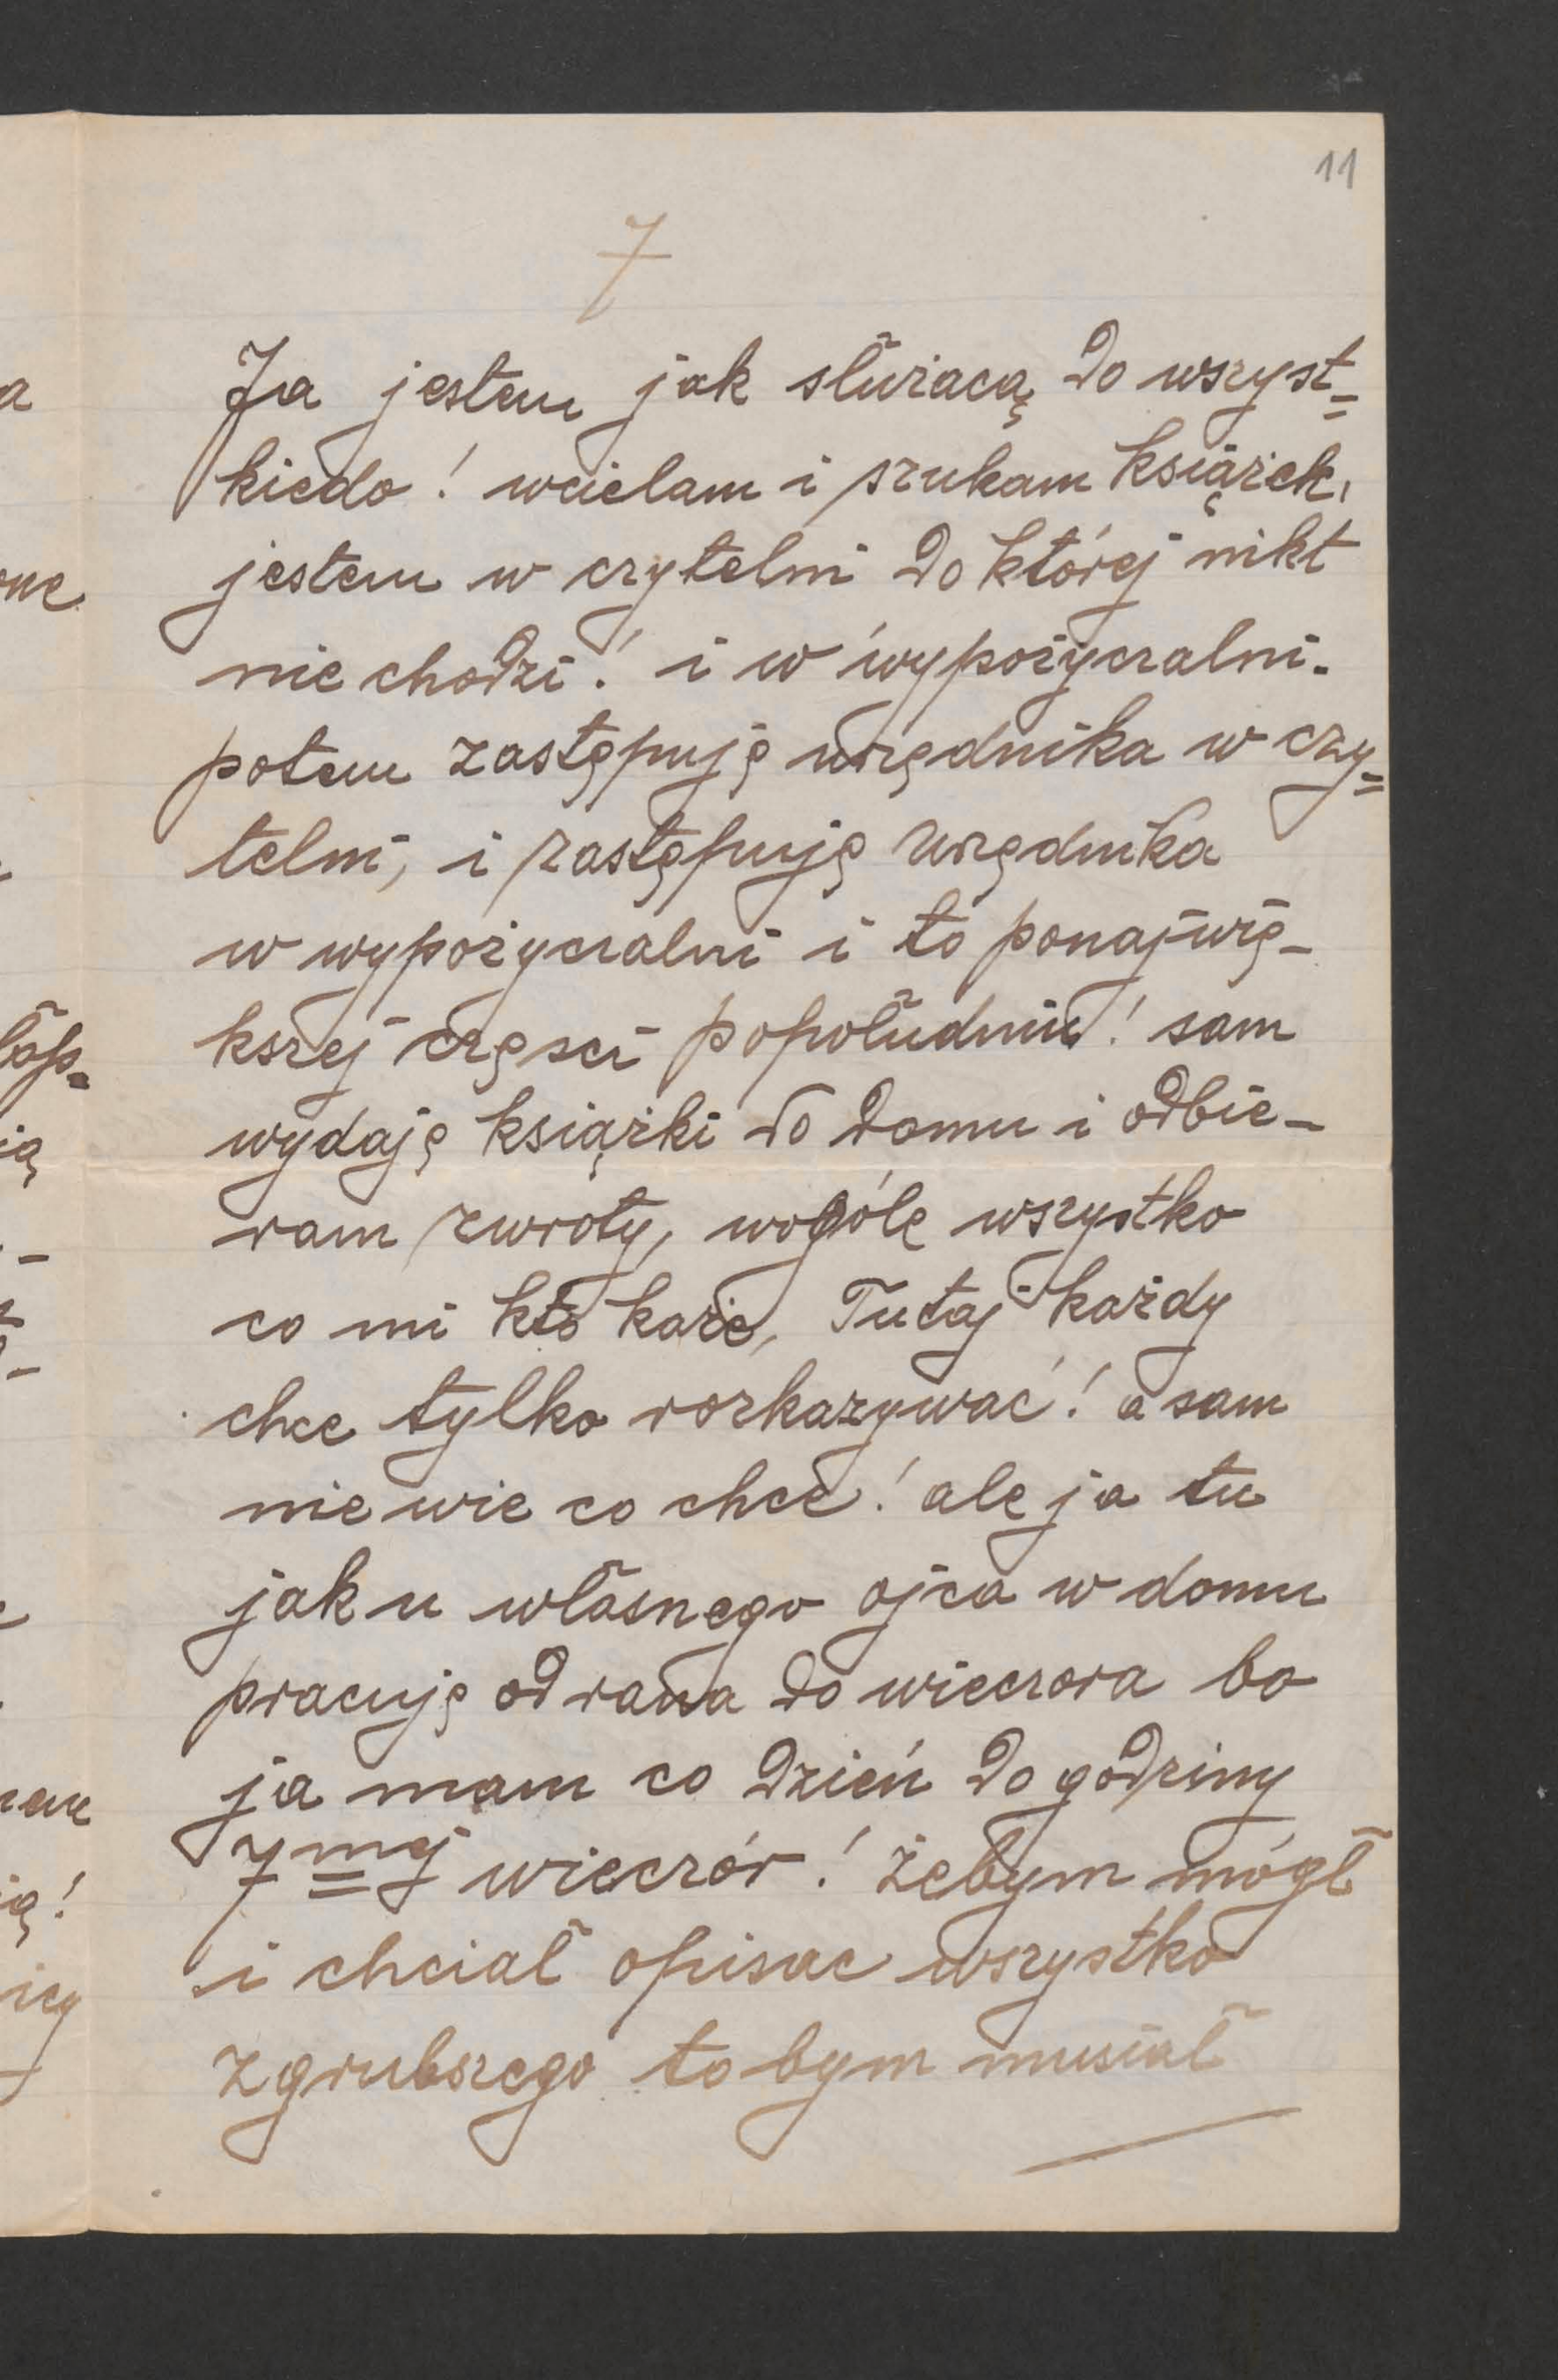 11
7
Ja jestem jak słuźacą do wszyst=
kiedo! wcielam i szukam książek,
jestem w czytelni do której nikt
nie chodzi! i w wypożyczalni.
potem zastępuję urzędnika w czy=
telni, i zastępuję urzędnika
w wypożyczalni i to ponajwię-
kszej częsci popołudniu! sam
wydaję książki do domu i odbie-
ram zwroty, wogóle wszystko
co mi kto każe, Tutaj każdy
chce tylko rozkazywać! a sam
nie wie co chce! ale ja tu
jak u własnego ojca w domu
pracuję od rana do wieczora bo
ja mam co dzień do godziny
7mej wieczór! żebym mógł
i chciał opisac wszystko
zgrubszego to bym musiał